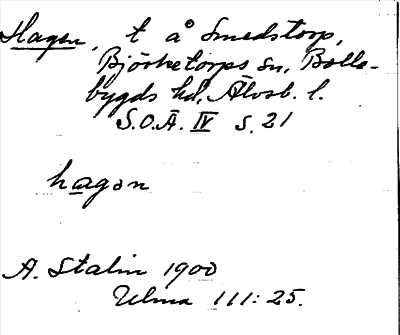 Hagen, t å Smedstorp,
Björketorps sn, Bolle-
bygds hd, Älvsb. l.
S.O.Ä. IV s. 21
hagən
A. Stalin 1900
Ulma 111: 25.